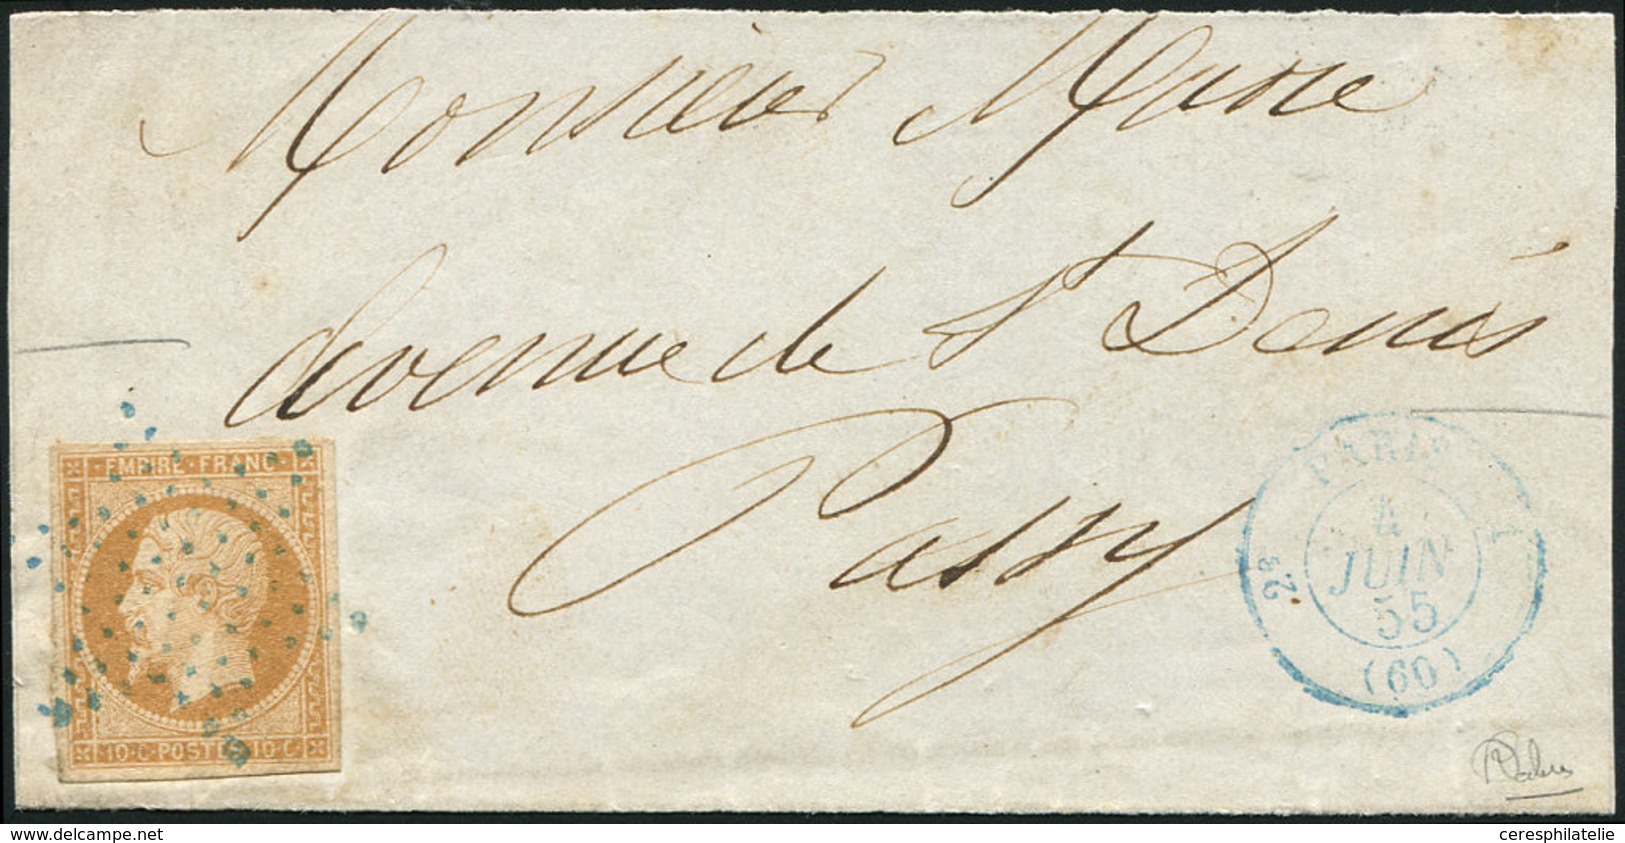 Monsieur Musse
Avenue de St Denis
Passy
EMPIRE · FRANC ·
10 · C · POSTES · 10 · C ·
PARIS
2e
4
JUIN
55
(60)
www.delcampe.net
ceresphilatelie